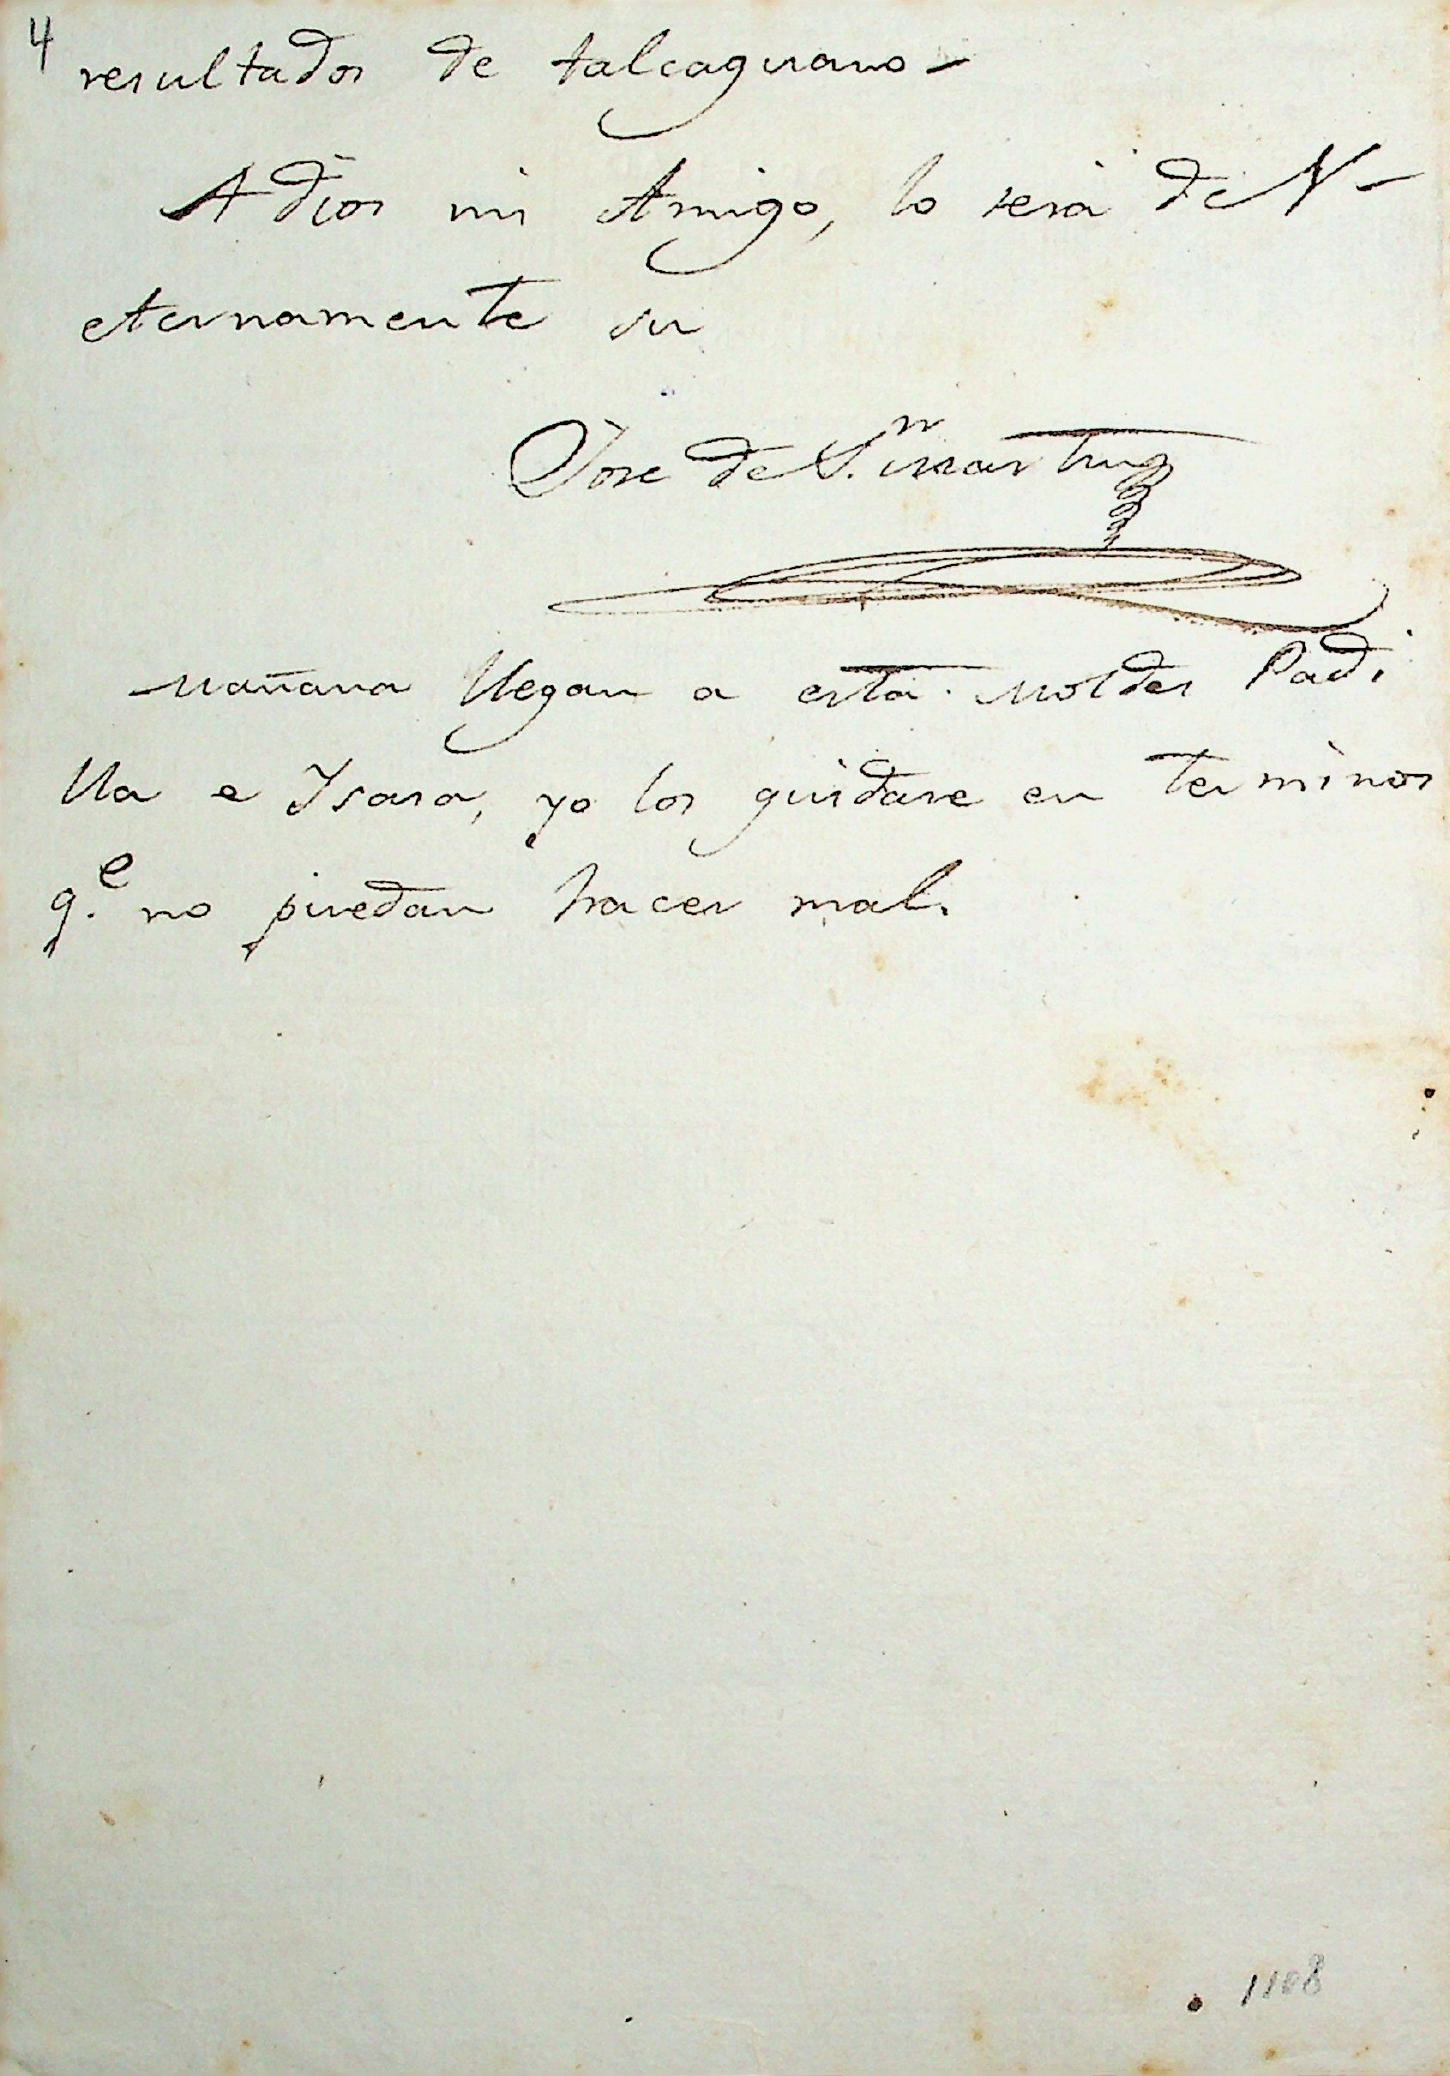 4
resultados de talcaguano -
Adios mi Amigo, lo será de V-
eternamente su
Jose de S.n Martin
Mañana llegan a esta Moldes Padi
lla e Isasa, yo los guidare en terminos
q.e no puedan hacer mal.
1108